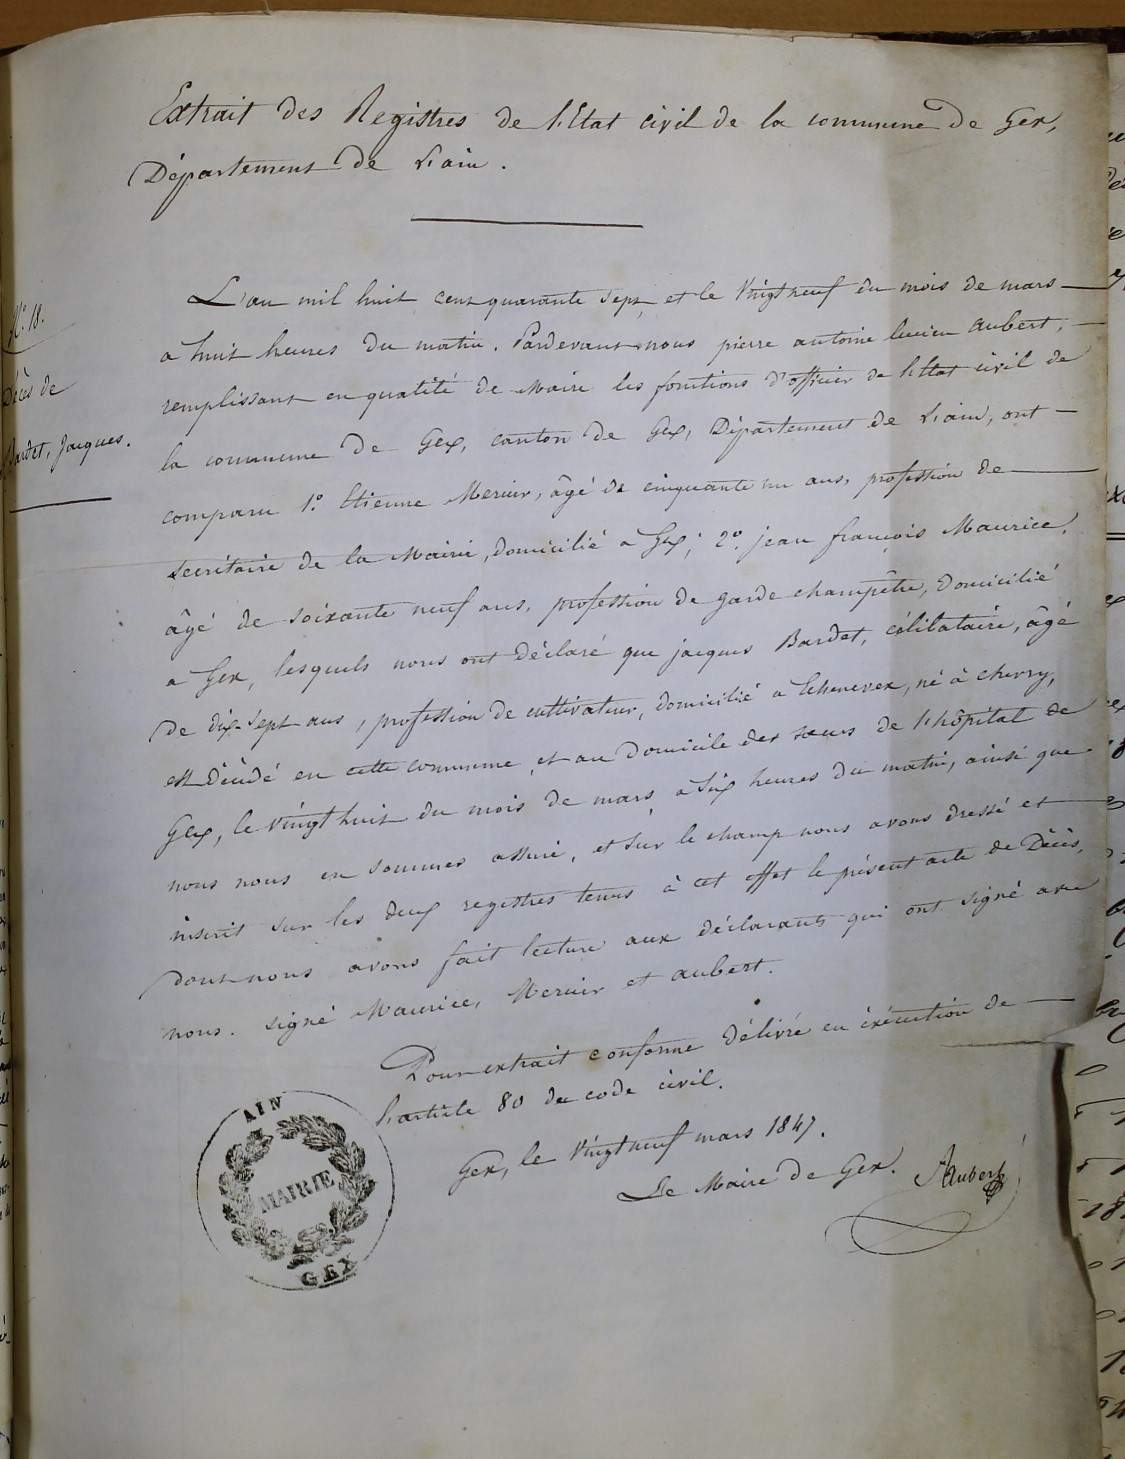 Extrait des Registres de l'Etat civil de la commune de Gex,
Département de l'ain.
N.º 18.
Décès de
Bardet, Jacques.
L'an mil huit cent quarante sept, et le vingt neuf du mois de mars
a huit heures du matin. Pardevant nous pierre antoine lucien aubert,
remplissant en qualité de Maire les fonctions d'officier de l'Etat civil de
la commune de Gex, canton de Gex, Département de l'ain, ont
comparu 1.º Etienne Mercier, âgé de cinquante un ans, profession de
secrétaire de la Mairie, domicilié a Gex; 2.º jean françois Maurice,
âgé de soixante neuf ans, profession de garde champêtre, domicilié
a Gex, lesquels nous ont déclaré que jacques Bardet, célibataire, âgé
de dix-sept ans, profession de cultivateur, domicilié a Echenevex, né à chevry,
est décédé en cette commune et au domicile des sœurs de l'hôpital de
Gex, le vingt huit du mois de mars a six heures du matin, ainsi que
nous nous en sommes assuré, et sur le champ nous avons dressé et
inscrit sur les deux registres tenus à cet effet le présent acte de Décès,
dont nous avons fait lecture aux déclarants qui ont signé avec
nous. signé Maurice, Mercier et aubert.
Pour extrait conforme délivré en éxécution de
l'article 80 du code civil.
Gex, le vingt neuf mars 1847.
Le Maire de Gex. Aubert
AIN
MAIRIE
GEX